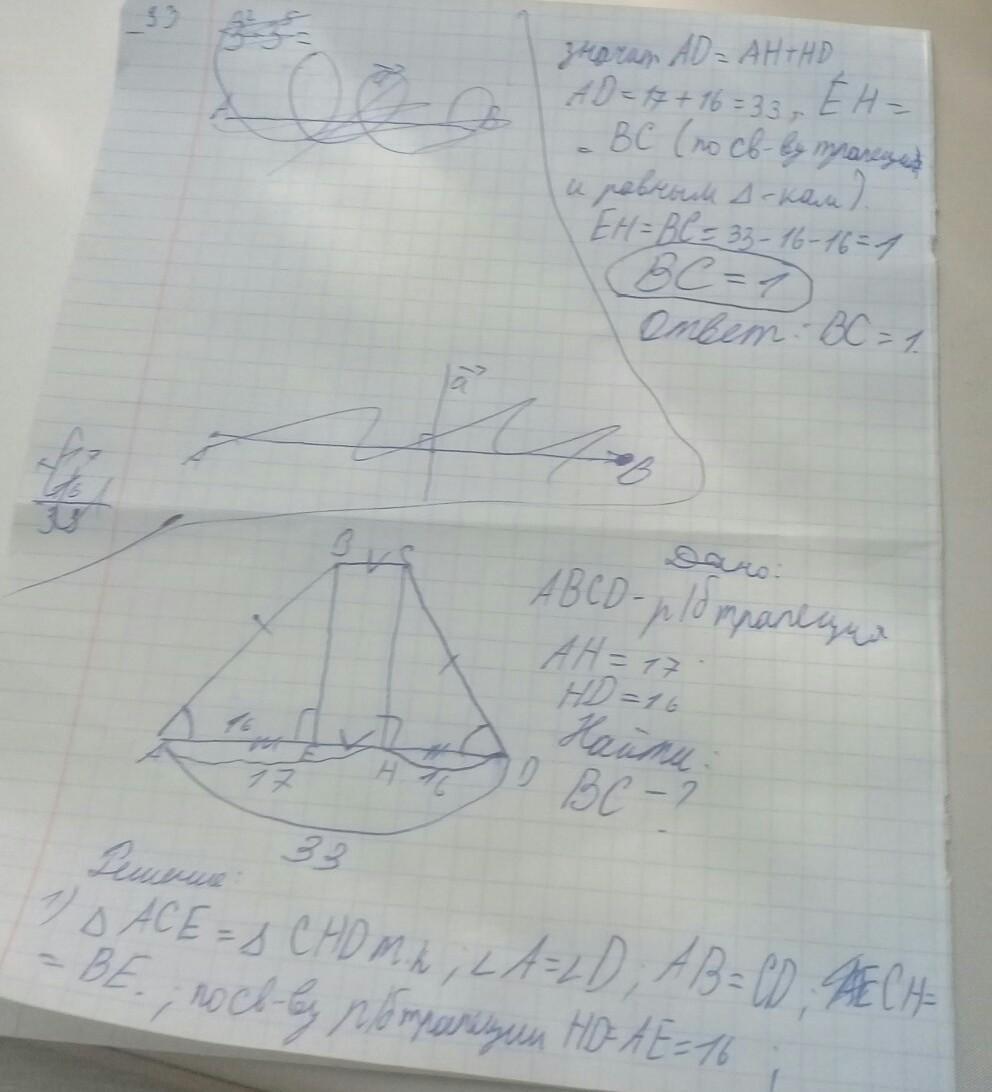 33
A
B
значит AD = AH+HD
AD = 17 + 16 = 33, EH =
= BC (по св-ву трапеции
и равным Δ-кам).
EH = BC = 33 - 16 - 16 = 1
BC = 1
Ответ: BC = 1.
a
A
B
33
B C
16
A E H D
17 16
33
Дано:
ABCD - р/б трапеция
AH = 17
HD = 16
Найти:
BC - ?
Решение:
1) Δ ACE = Δ CHD т.к ; ∠A = ∠D ; AB = CD ; CH =
= BE. ; по св-ву р/б трапеции HD = AE = 16 ;